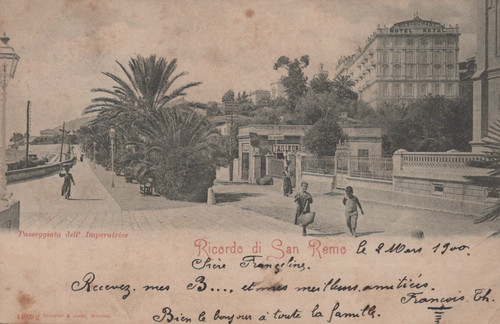 HOTEL ROYAL
TAILLEUR
Passeggiata dell' Imperatrice
Ricordo di San Remo
le 2 Mars 1900.
Recevez, mes B..., et mes meilleurs amitiés.
François Th.
Bien le bonjour à toute la famille.